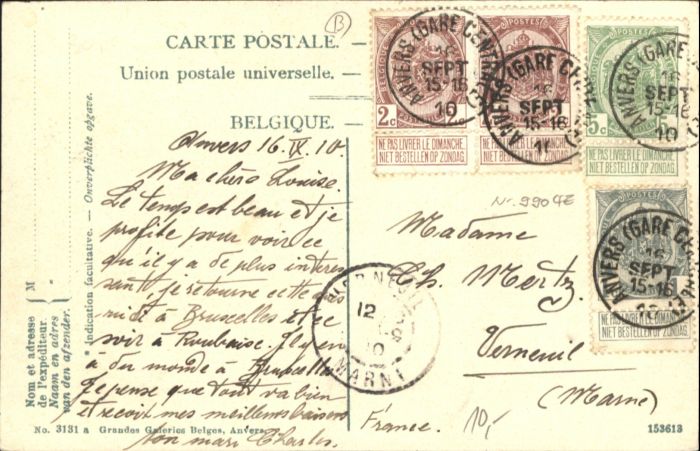 B
CARTE POSTALE.
Union postale universelle.
BELGIQUE.
Anvers 16.IX.10.
Ma chère Louise.
Le temps est beau et je
profite pour voir ce
qu'il y a de plus interes
sant je retourne cette après
midi à Bruxelles et ce
soir à Roubaix. Il y en
a du monde à Bruxelles
Je pense que tout va bien
et reçoit mes meilleurs baisers
ton mari Charles.
Madame
Ch. Mertz
Verneuil
(Marne)
France.
10,-
Nr. 9904E
POSTES
2c
NE PAS LIVRER LE DIMANCHE
NIET BESTELLEN OP ZONDAG
ANVERS (GARE CENTRALE)
16
SEPT
15-16
10
POSTES
NE PAS LIVRER LE DIMANCHE
NIET BESTELLEN OP ZONDAG
ANVERS (GARE
SEPT
15-16
POSTES
5c
NE PAS LIVRER LE DIMANCHE
NIET BESTELLEN OP ZONDAG
ANVERS (GARE
16
SEPT
15-16
10
NE PAS LIVRER LE DIMANCHE
NIET BESTELLEN OP ZONDAG
ANVERS (GARE
16
SEPT
15-16
12
10
MARNE
* Indication facultative. — Onverplichte opgave.
Nom et adresse
de l'expéditeur.
Naam en adres
van den afzender.
M
No. 3131 a Grandes Galeries Belges, Anvers.
153613